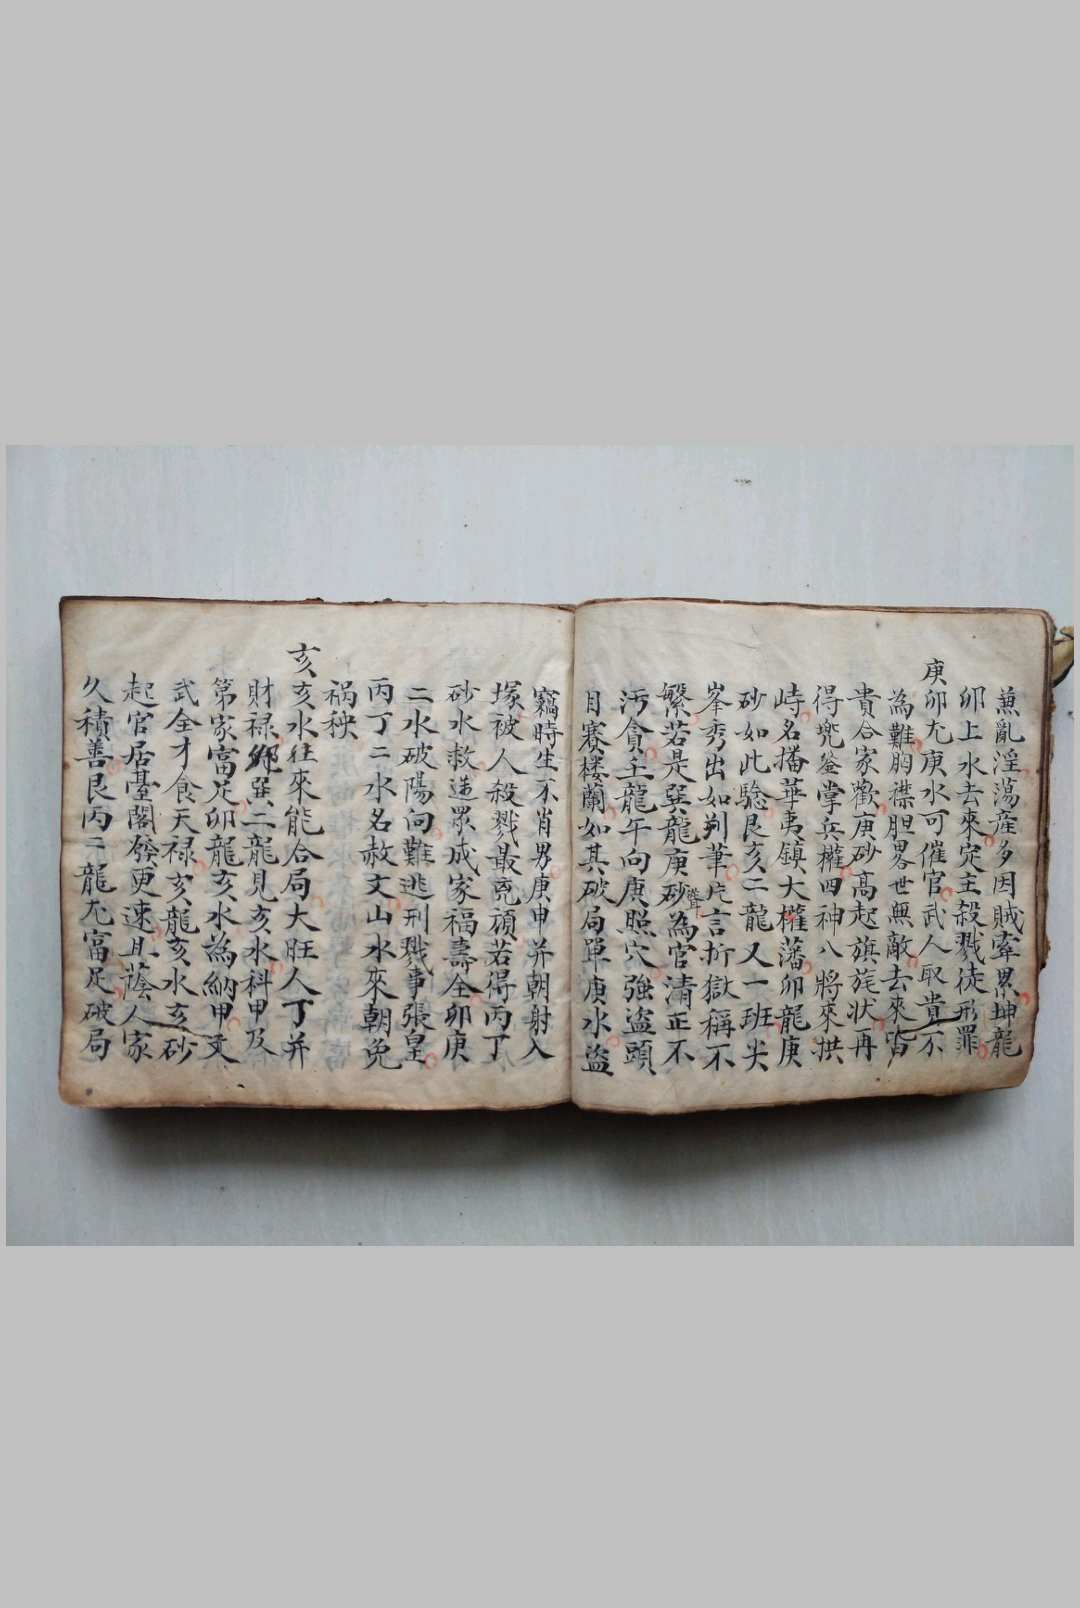 蕉亂淫蕩産多因賊牽累坤龍
卯上水去來定主殺戮徒刑罪
庚卯尤庚水可催官武人取貴不
為難胸襟胆畧世無敵去來皆
貴合家歡庚砂高起旗旄状再
得兜鍪掌兵權四神八將來拱
峙名播華夷鎮大權藩卯龍庚
砂如此驗艮亥二龍又一班尖
峯秀出如判筆片言折獄稱不
繁若是巽龍庚砂聳為官清正不
汚貪壬龍午向庚照穴強盜頭
目賽楼蘭如其破局單庚水盜
竊時生不肖男庚申并朝射入
塚被人殺戮最兇頑若得丙丁
砂水救造眾成家福壽全卯庚
二水破陽向難逃刑戮事張皇
丙丁二水名赦文山水來朝免
禍秧
亥亥水往來能合局大旺人丁并
財禄卯巽二龍見亥水科甲及
第家富足卯龍亥水為納甲文
武全才食天禄亥龍亥水亥砂
起官居臺閣發更速且蔭人家
久積善艮丙二龍尤富足破局